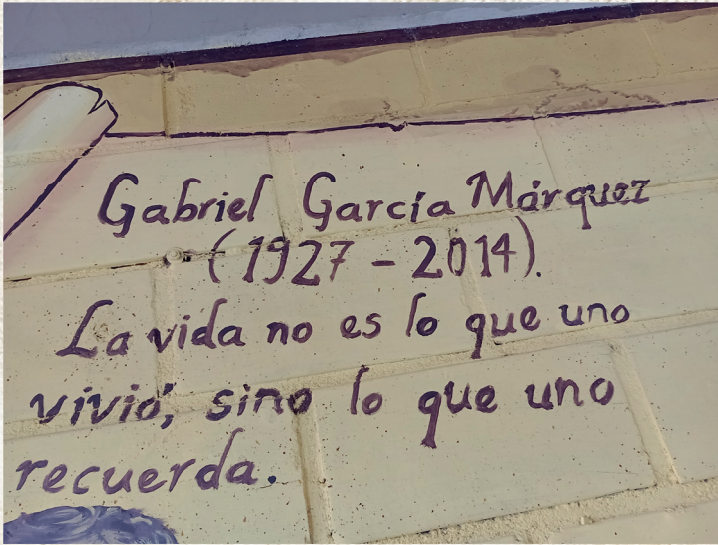 Gabriel García Márquez
(1927 - 2014).
La vida no es lo que uno
vivió, sino lo que uno
recuerda.